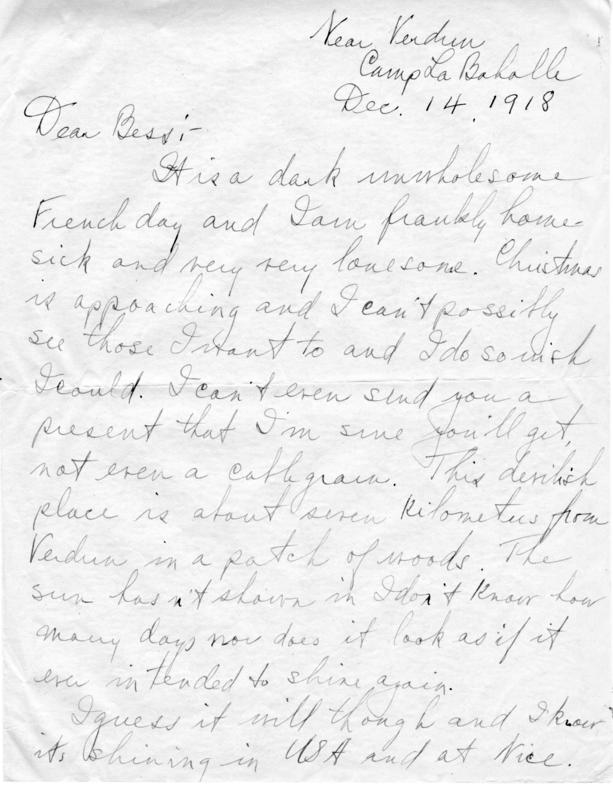 Near Verdun
Camp La Baholle
Dec. 14, 1918
Dear Bess:-
It is a dark unwholesome
French day and I am frankly home-
sick and very very lonesome. Christmas
is appoaching and I can't possibly
see those I want to and I do so wish
I could. I can't even send you a
present that I'm sure you'll get,
not even a cablegram. This devilish
place is about seven kilometers from
Verdun in a patch of woods. The
sun hasn't shown in I don't know how
many days nor does it look as if it
ever intended to shine again.
I guess it will though and I know
its shining in USA and at Nice.